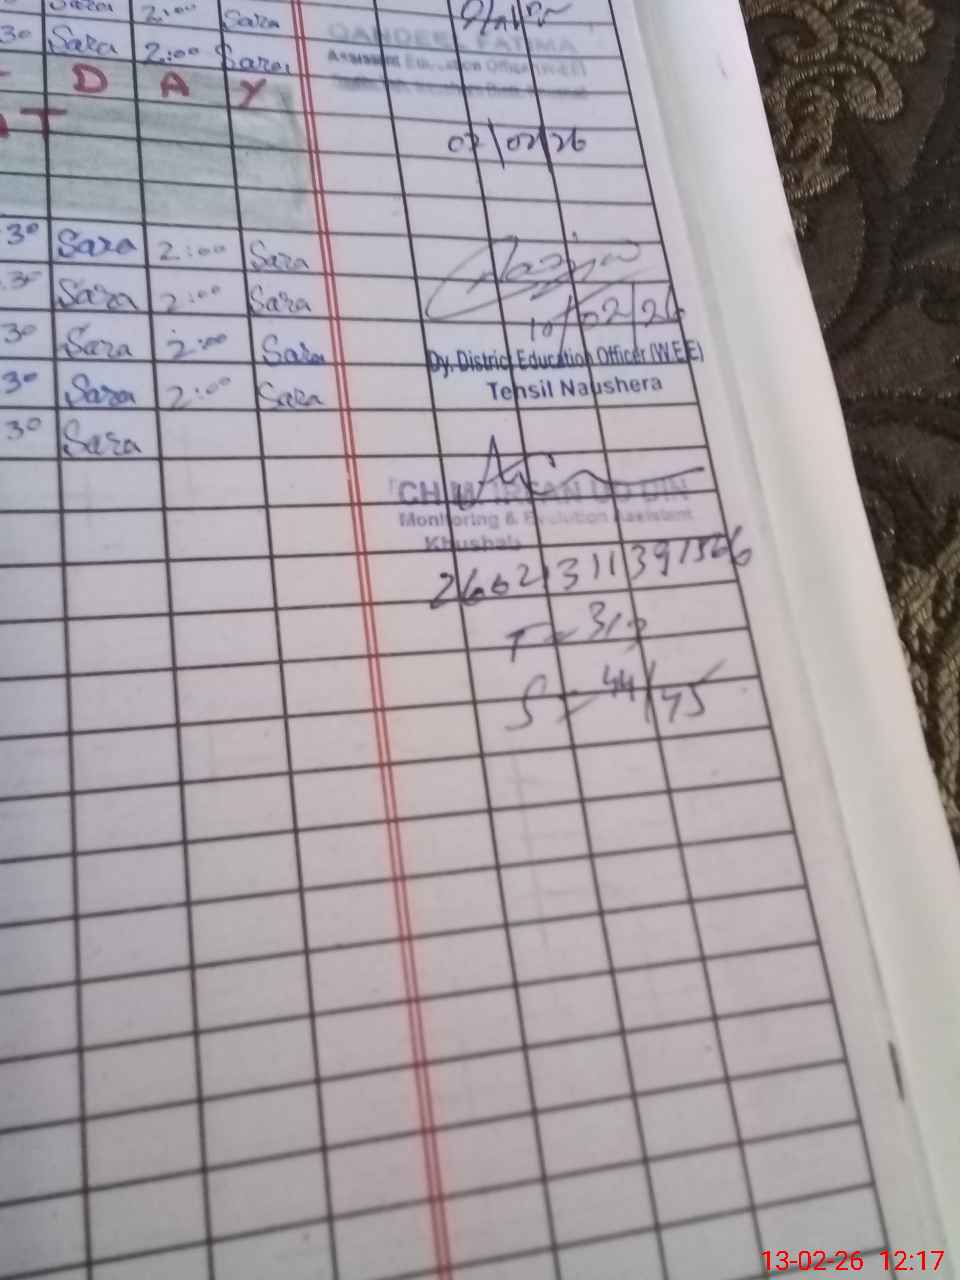 Sara 2:00 Sara
30 Sara 2:00 Sara
QANDEEL FATIMA
Assistant Education Officer (W-EE)
D A Y
T
02/02/26
30 Sara 2:00 Sara
30 Sara 2:00 Sara
10/02/26
30 Sara 2:00 Sara
Dy. District Education Officer (W.E.E)
Tehsil Naushera
30 Sara 2:00 Sara
30 Sara
CH M IRFAN UD DIN
Monitoring & Evolution Assistant
Khushab
T = 3/3
S = 44/45
13-02-26 12:17